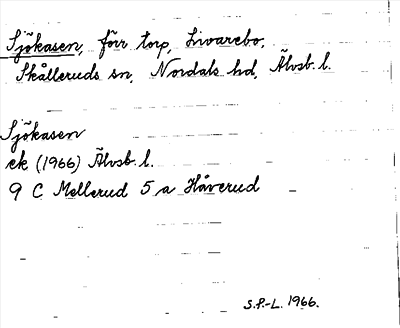 Sjökasen, förr torp, Livarebo,
Skålleruds sn, Nordals hd, Älvsb. l.
Sjökasen
ek (1966) Älvsb. l.
9 C Mellerud 5 a Håverud
S.P.-L. 1966.